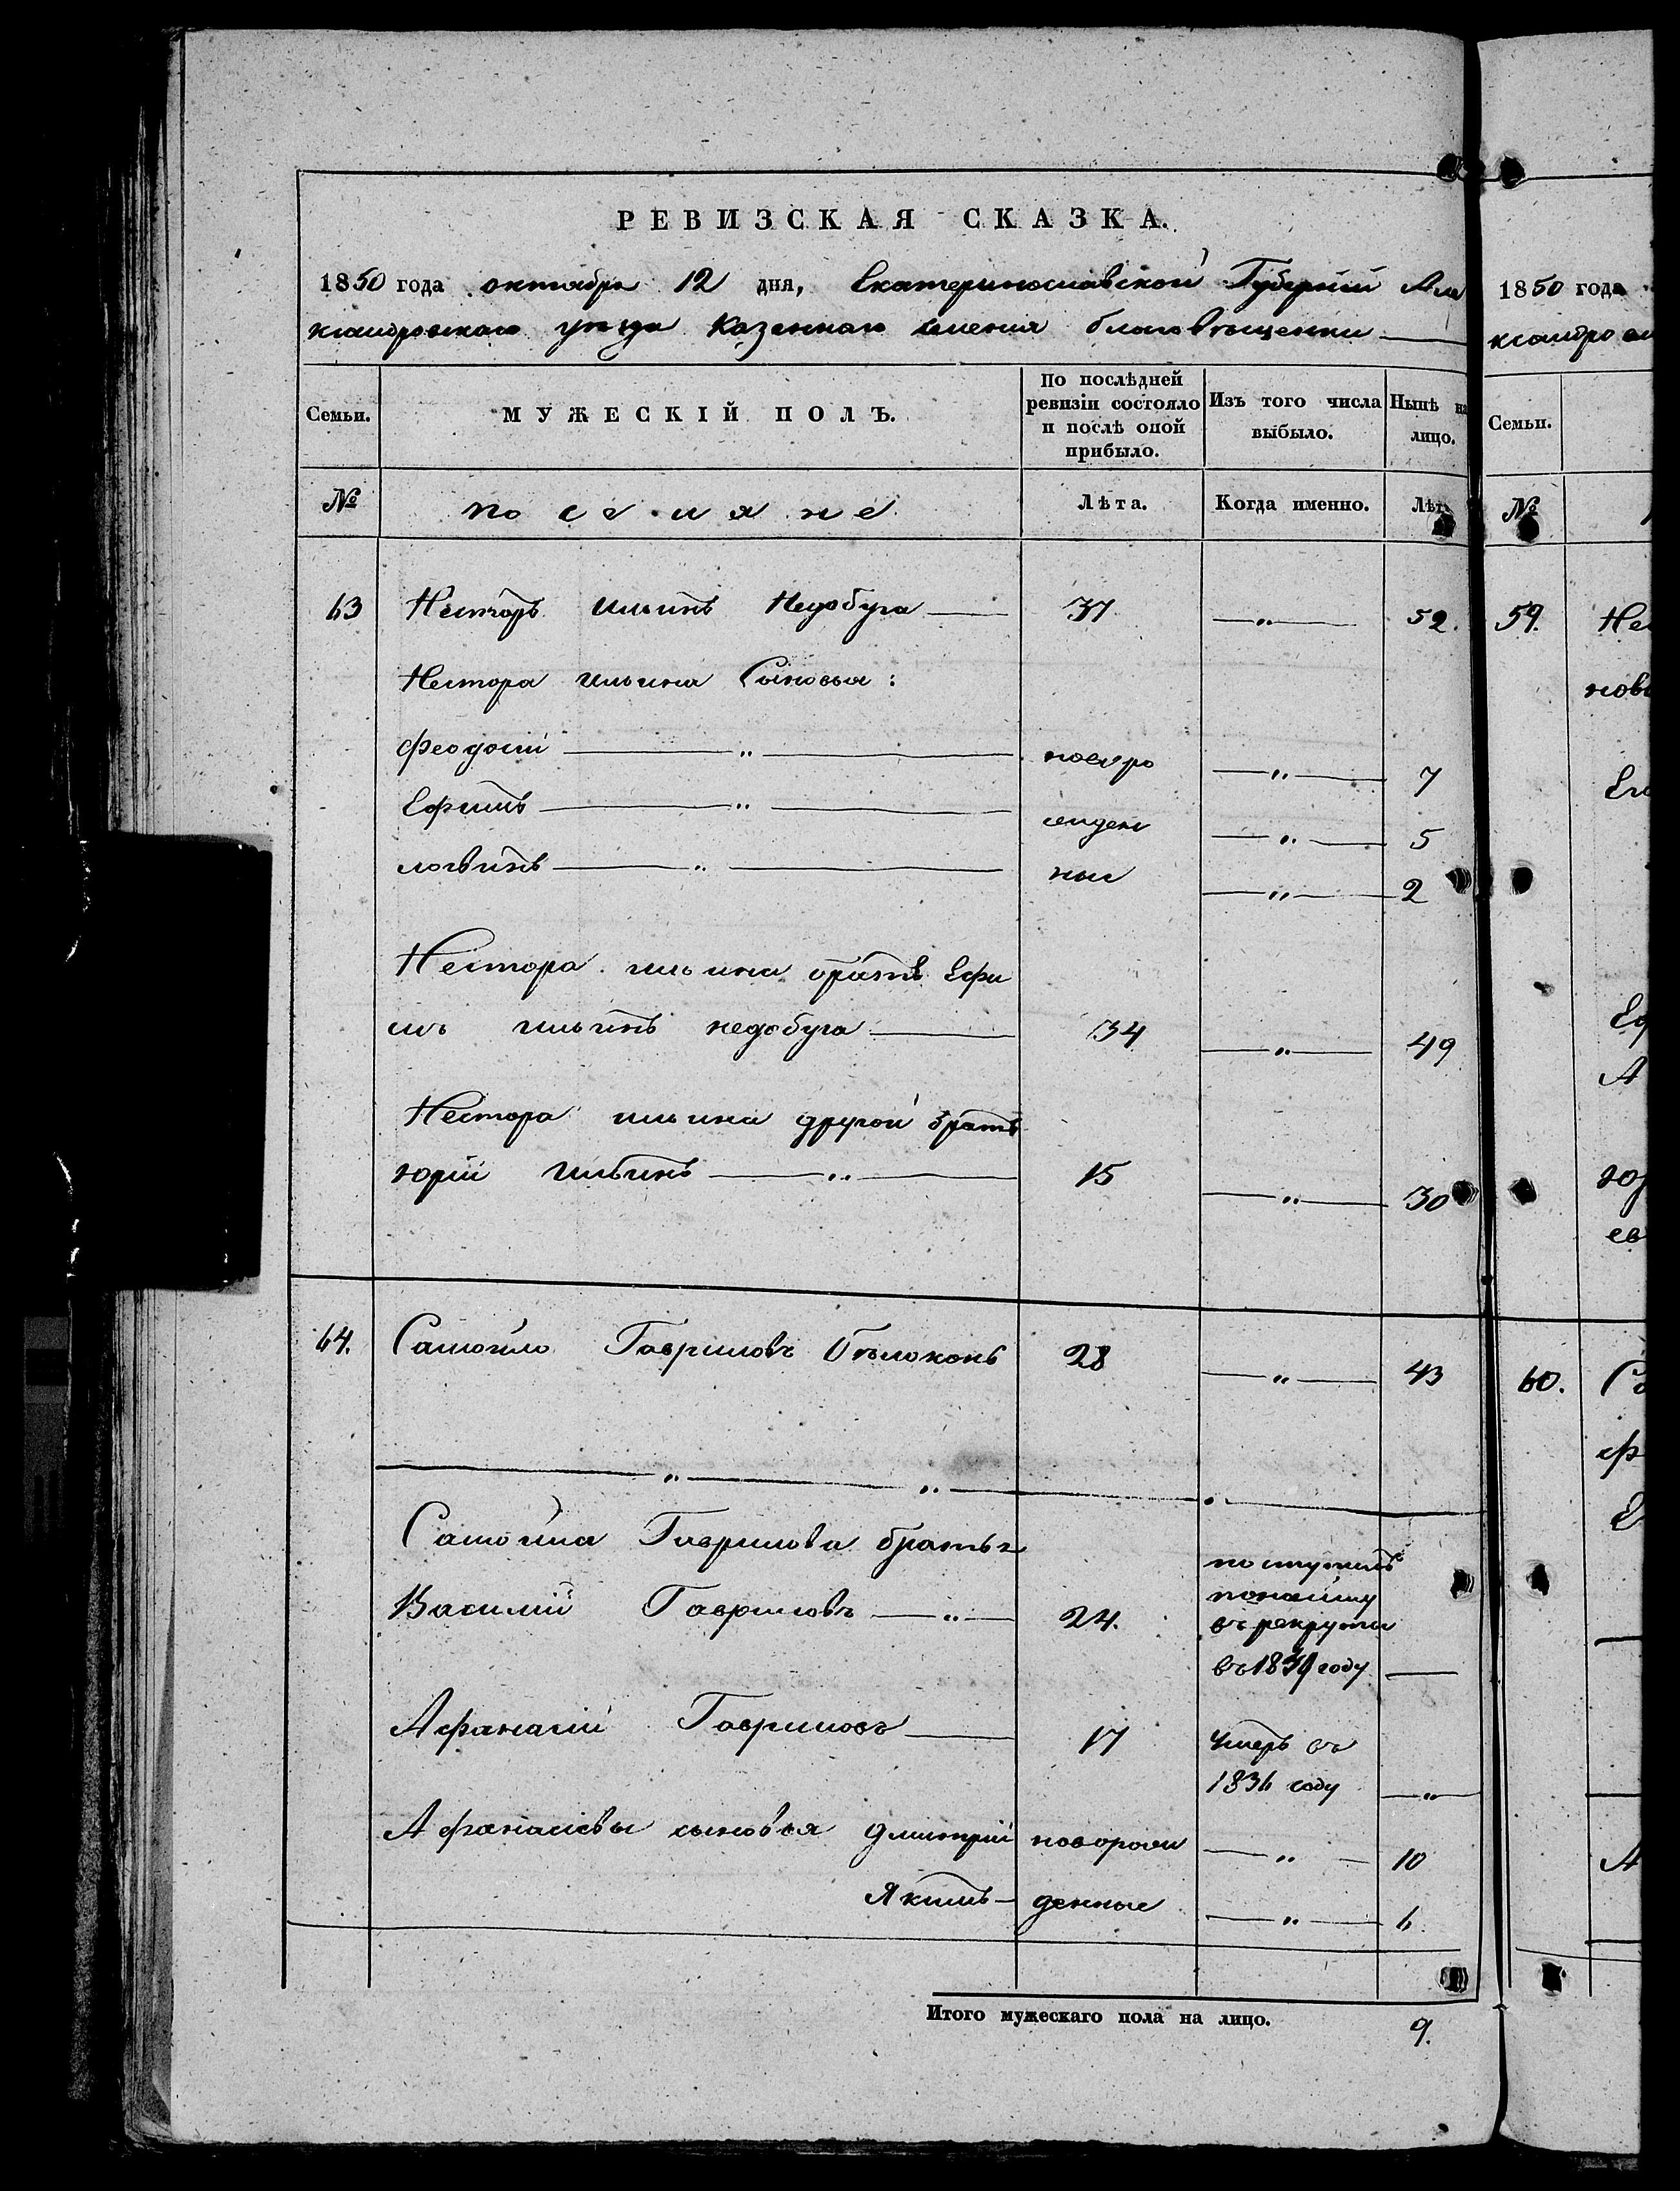 РЕВИЗСКАЯ СКАЗКА.
1850 года октября 12 дня, Екатеринославской Губерніи Але
ксандровскаго уезда Казеннаго селения благовѣщенки
Семьи.
МУЖЕСКІЙ ПОЛЪ.
По послѣдней ревизіи состояло и послѣ оной прибыло.
Изъ того числа выбыло.
Нынѣ на лицо.
№ поселяне Лѣта. Когда именно. Лѣт
63 Несторъ ильинъ Недобуга 37 — „ — 52.
Нестора ильина Сыновья:
феодосій — „ — новоро — „ — 7
Ефимъ — „ — жден — „ — 5
логвинъ — „ — ные — „ — 2
Нестора ильина братъ Ефи
мъ ильинъ недобуга 34 — „ — 49
Нестора ильина другой братъ
юрій ильинъ — „ — 15 — „ — 30
64. Самойло Гавриловъ бѣлоконь 28 — „ — 43
— „ — „ —
Самойла Гаврилова братья
Василій Гавриловъ — „ — 24. поступилъ
по найму
въ рекруты
въ 1839 году —
Афанасій Гавриловъ — 17 умеръ въ
1836 году — „ —
Афанасіевы сыновья дмитрій новорож — „ — 10
Якимъ — денные — „ — 6
Итого мужескаго пола на лицо. 9.
1850 года
ксандровс
Семьи.
№
59. Не
нов
Ег
Еф
А
юр
ев
60. Са
ф
Е
А